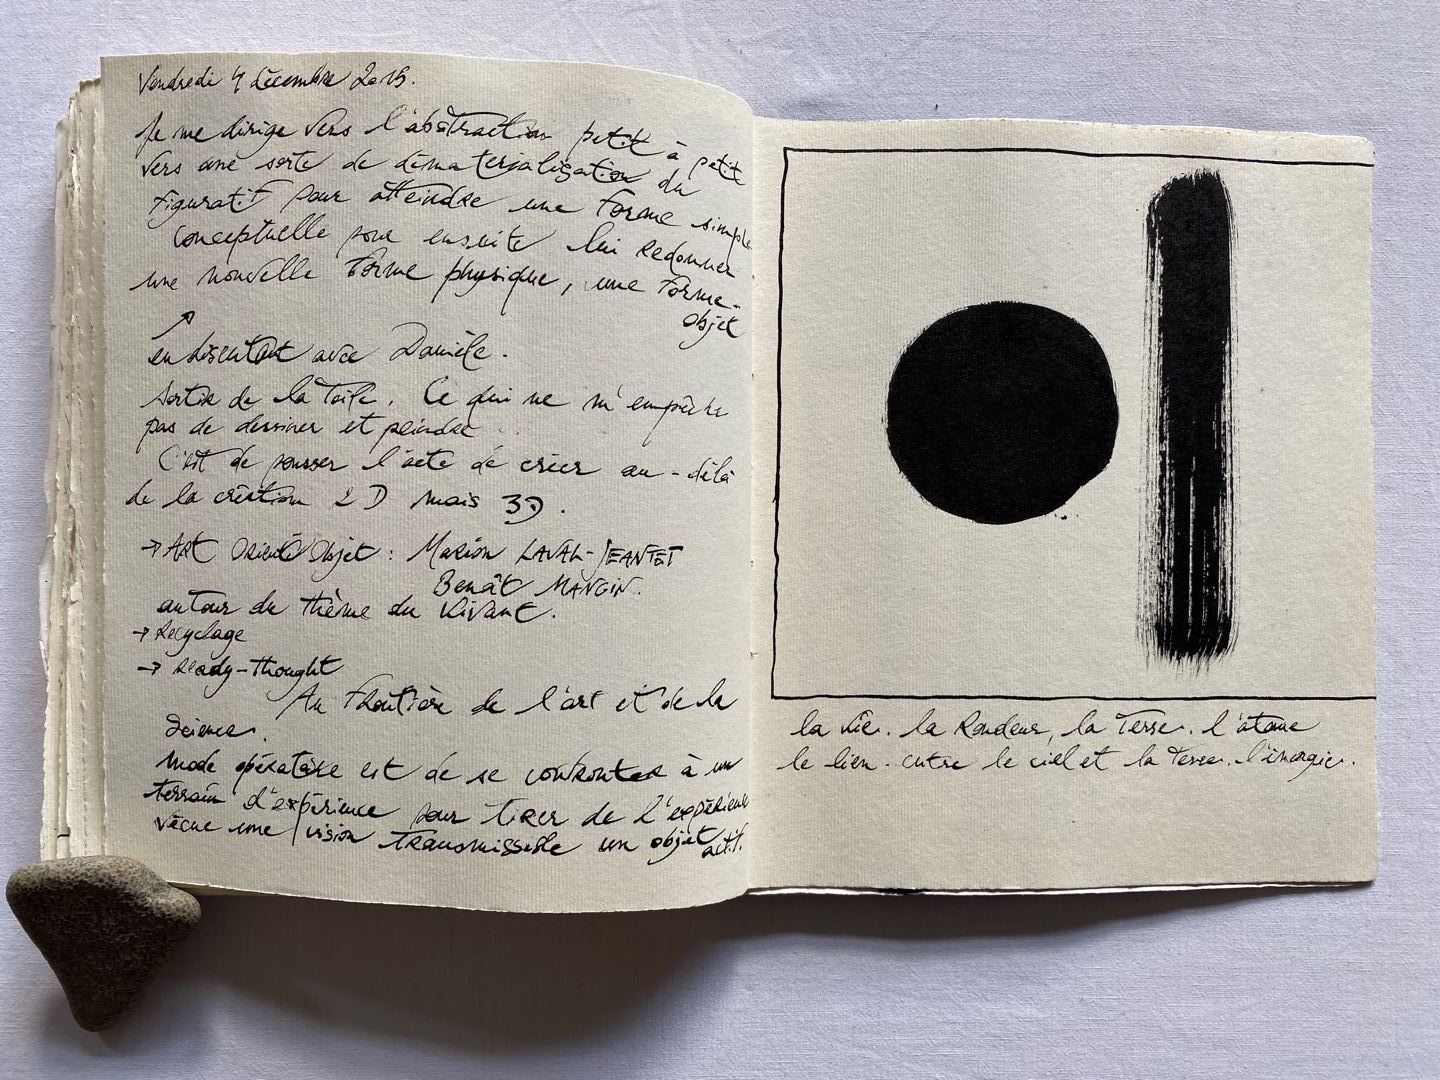 Vendredi 4 décembre 2015.
Je me dirige vers l'abstraction petit à petit
vers une sorte de dématerialisation du
figuratif pour atteindre une forme simple
conceptuelle pour ensuite lui redonner
une nouvelle forme physique, une forme-
objet
en discutant avec Danièle.
sortir de la toile. Ce qui ne m'empêche
pas de dessiner et peindre
C'est de pousser l'acte de créer au-délà
de la création 2D mais 3D.
→ Art Orienté Objet : Marion LAVAL-JEANTET
Benoît MANGIN.
autour du thème du vivant.
→ Recyclage
→ ready-thought
Au frontière de l'art et de la
science.
Mode opératoire est de se confronter à un
terrain d'expérience pour tirer de l'expérience
vécue une vision transmissible un objet
actif.
la vie. la Rondeur, la Terre. l'atome
le lien. entre le ciel et la Terre. l'énergie.